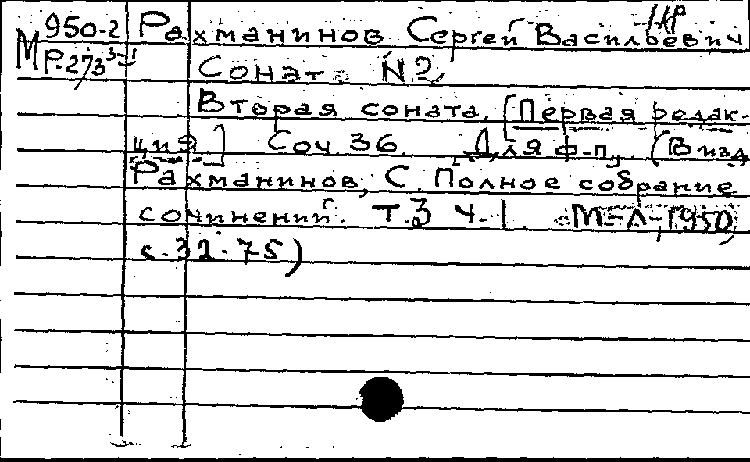 М 950-2 Рахманинов Сергей Васильевич
Р-273 Соната N2.
Вторая соната. [Первая редак-
ция] Соч 36. Для ф-п. (В изд
Рахманинов, С. Полное собрание
сочинений. Т.3 ч.1 М-Л, 1950,
с.32-75)